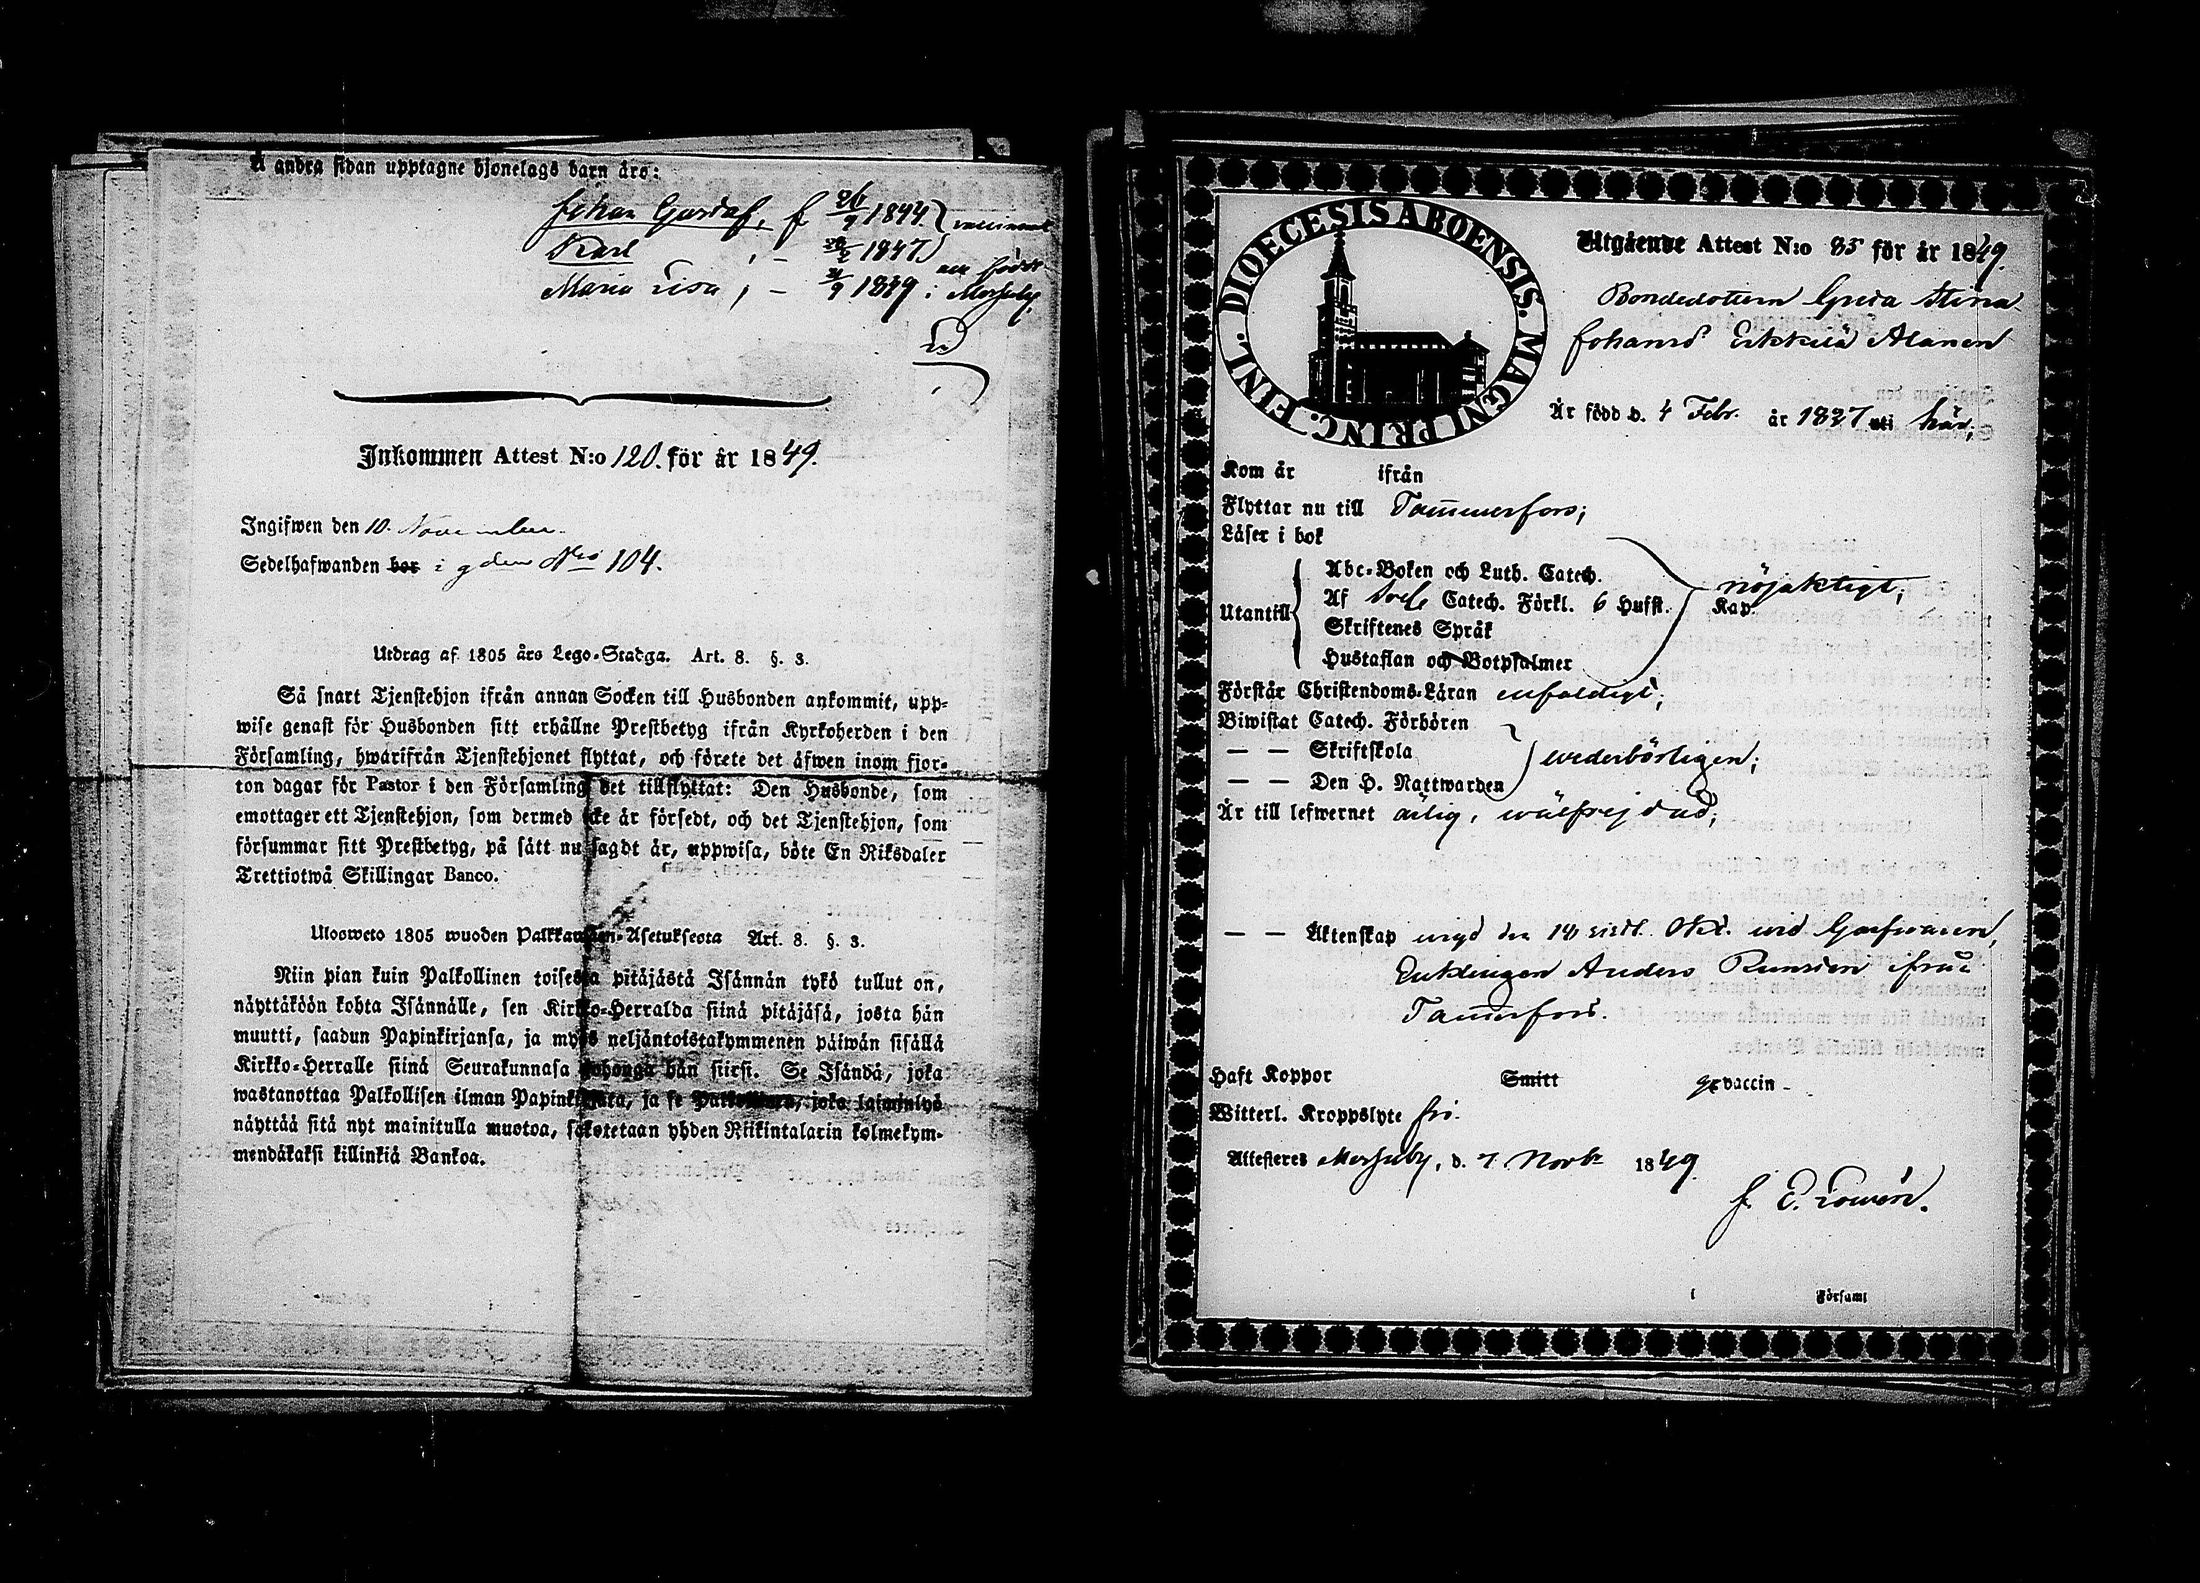 Å andra sidan upptagne hjonelags barn äro:
Johan Gustaf, f. 26/9 1844.
Karl, – 20/2 1847
Maria Lisa, – 9 1849 i Messuby.
Inkommen Attest N:o 120. för år 1849.
Ingifwen den 10. November.
Sedelhafwanden bor i gden Nro 104.
Utdrag af 1805 års Lego-Stadga. Art. 8. §. 3.
Så snart Tjenstehjon ifrån annan Socken till Husbonden ankommit, upp-
wise genast för Husbonden sitt erhållne Prestbetyg ifrån Kyrkoherden i den
Församling, hwarifrån Tjenstehjonet flyttat, och förete det äfwen inom fjor-
ton dagar för Pastor i den Församling det tillflyttat: Den Husbonde, som
emottager ett Tjenstehjon, som dermed icke är försedt, och det Tjenstehjon, som
försummar sitt Prestbetyg, på sätt nu sagdt är, uppwisa, böte En Riksdaler
Trettiotwå Skillingar Banco.
Ulosweto 1805 wuoden Palkkausten-Asetuksesta Art. 8. §. 3.
Niin pian kuin Palkollinen toisesta pitäjästä Isännän tykö tullut on,
näyttäköön kohta Isännälle, sen Kirkko-Herralda siinä pitäjäsä, josta hän
muutti, saadun Papinkirjansa, ja myös neljäntoistakymmenen päiwän sisällä
Kirkko-Herralle siinä Seurakunnasa johonga hän siirsi. Se Isändä, joka
wastanottaa Palkollisen ilman Papinkirjata, ja se Palkollinen, joka laiminlyö
näyttää sitä nyt mainitulla muotoa, sakotetaan yhden Riikintalarin kolmekym-
mendäkaksi killinkiä Bankoa.
FINL. DIOECESIS ABOENSIS. MAGNI PRINC.
Utgående Attest N:o 85 för år 1849.
Bondedottern Greta Stina
Johansd:r Erkkilä Alanen
Är född d. 4 Febr. år 1827 uti här;
Kom år ifrån
Flyttar nu till Tammerfors;
Läser i bok
Utantill
Abc-Boken och Luth. Catech.
Af Svebe. Catech. Förkl. 6 Hufst. Kap. nöjaktigt;
Skriftenes Språk
Hustaflan och Botpsalmer
Förstår Christendoms-Läran enfaldigt;
Biwistat Catech. Förhören
— — Skriftskola wederbörligen;
— — Den H. Nattwarden
Är till lefwernet ärlig, wälfrejdad;
— — Äktenskap lyst den 14 sistl. Okt. wid Garfwaren,
Enklingen Anders Ramsten ifrån
Tammerfors.
Haft Koppor Smitt gr vaccin –
Witterl. Kroppslyte fri.
Attesteres Messuby, d. 7 Novbr 1849.
J. E. Lourén.
Församl